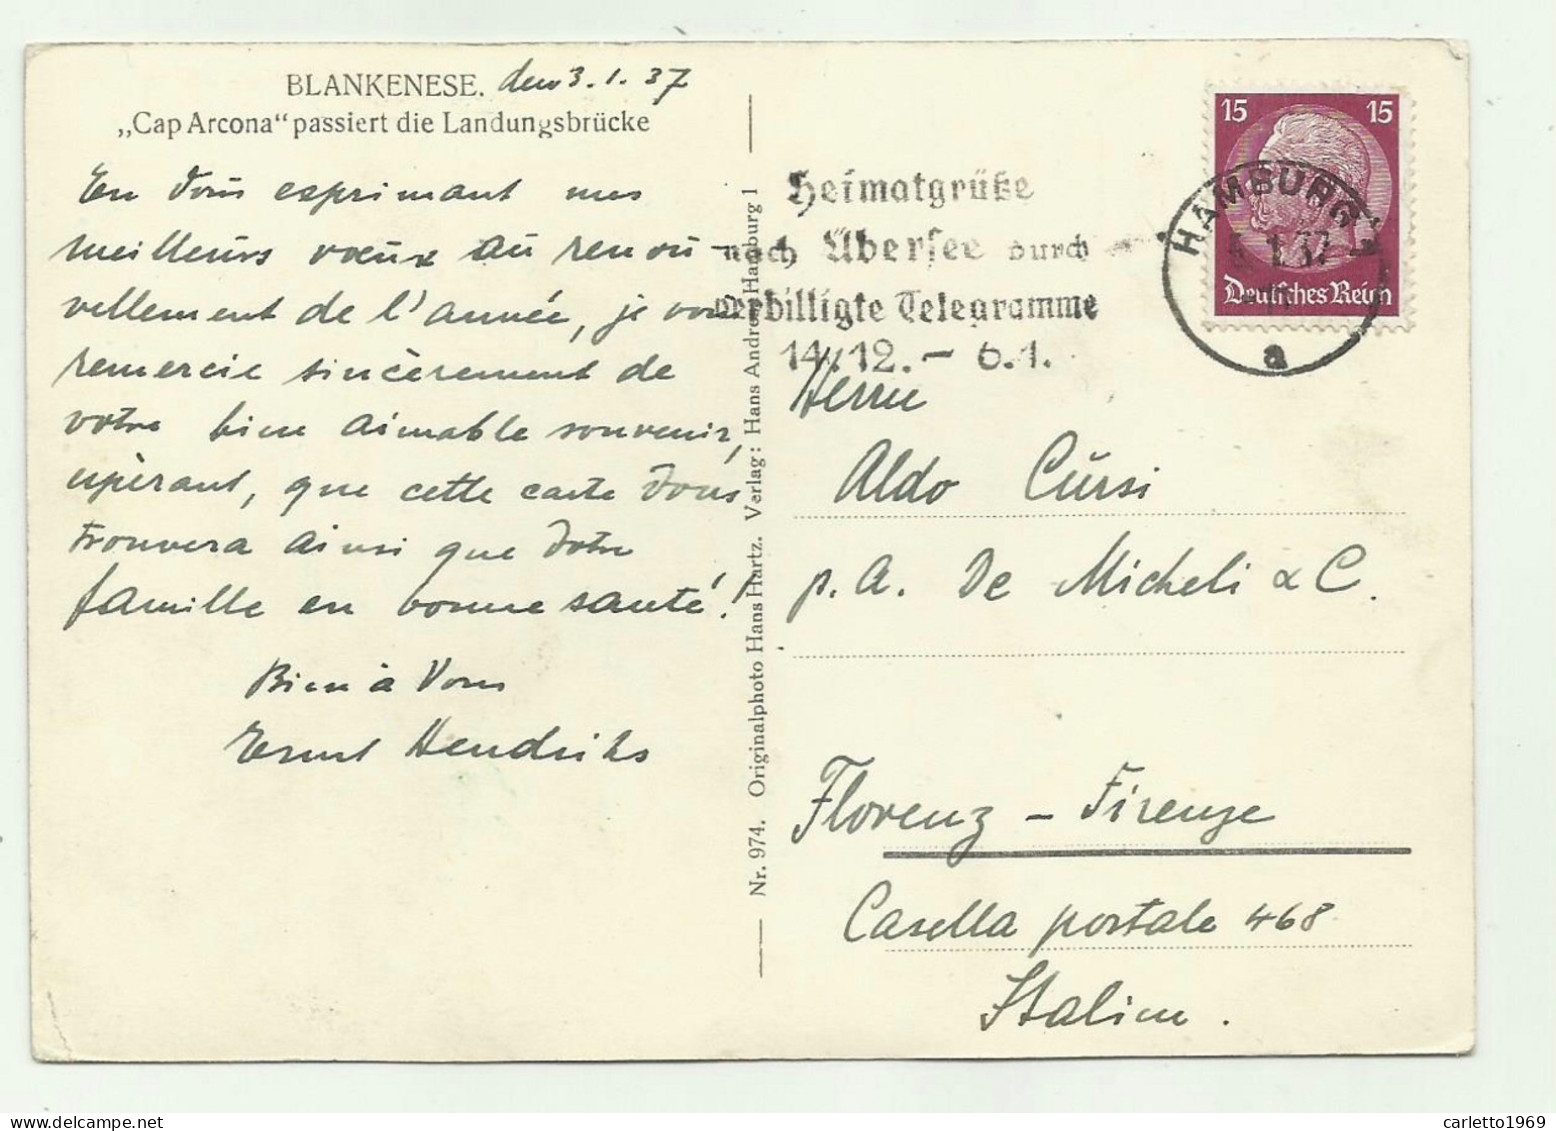 BLANKENESE. den 3.1.37
„Cap Arcona“ passiert die Landungsbrücke
En Vous exprimant mes
meilleurs vœux au renou-
vellement de l'année, je vous
remercie sincèrement de
votre bien aimable souvenir,
espèrant, que cette carte Vous
trouvera ainsi que Votre
famille en bonne santé!
Bien à Vous
Ernst Hendriks
Nr. 974. Originalphoto Hans Hartz. Verlag: Hans Andres, Hamburg 1
Heimatgrüße
nach Übersee durch
verbilligte Telegramme
14.12. - 6.1.
15 15
Deutsches Reich
HAMBURG
1.37
a
Herrn
Aldo Cursi
p.A. De Micheli & C.
Florenz - Firenze
Casella postale 468
Italien.
carletto1969